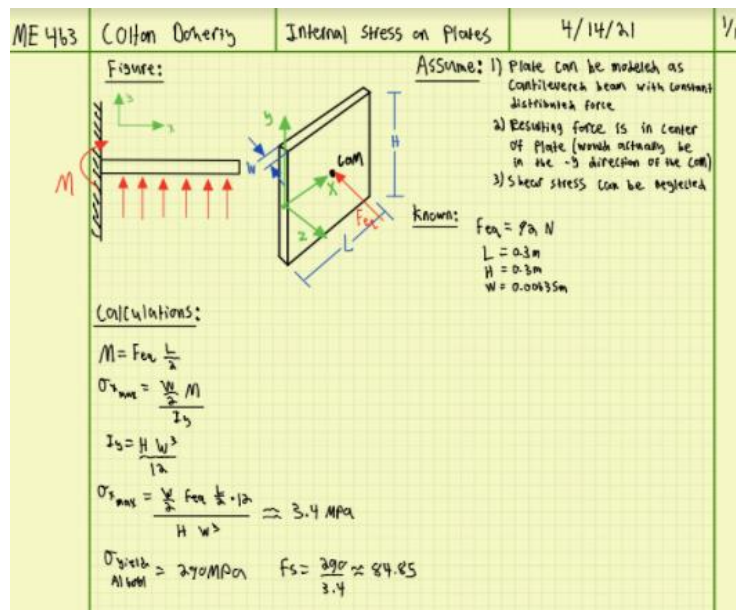 ME 463
Colton Doherty
Internal Stress on Plates
4/14/21
1/1
Figure:
y
x
M
y
W
COM
H
x
z
Feq
L
Assume: 1) Plate can be modeled as
cantilevered beam with constant
distributed force
2) Resulting force is in center
of plate (would actually be
in the -y direction of the COM)
3) Shear stress can be neglected
Known:
Feq = 92 N
L = 0.3m
H = 0.3m
W = 0.00635m
Calculations:
M = Feq L/2
σx max = W/2 M / Iy
Iy = H W³ / 12
σx max = W/2 Feq L/2 · 12 / H W³ ≈ 3.4 MPa
σyield Al 6061 = 290 MPa Fs = 290/3.4 ≈ 84.85